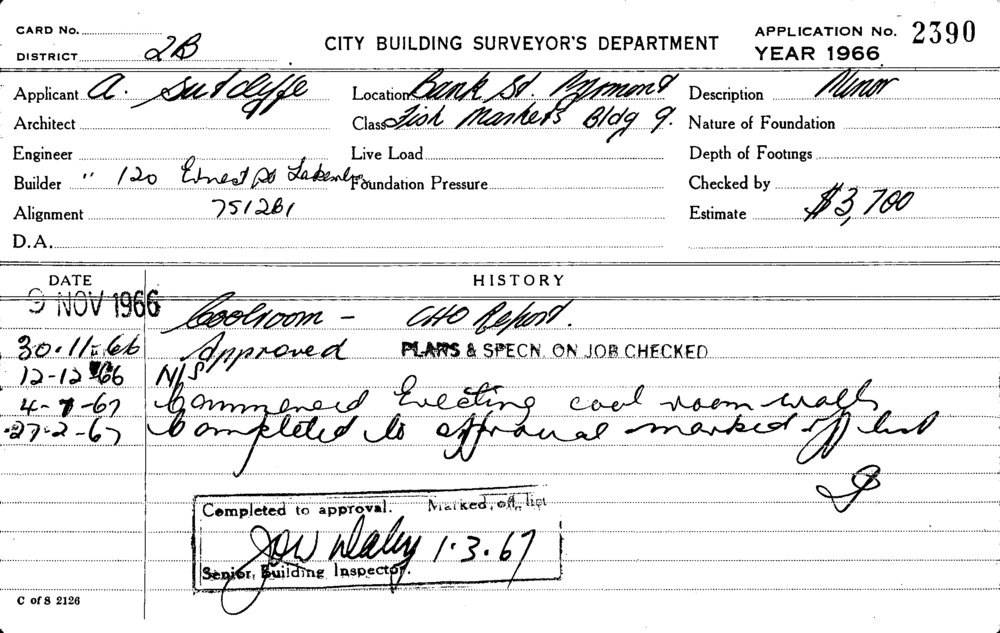 CARD No.
DISTRICT 2B
CITY BUILDING SURVEYOR'S DEPARTMENT
APPLICATION No. 2390
YEAR 1966
Applicant A. Sutclyffe Location Bank St. Pyrmont Description Minor
Architect Class Fish Markets Bldg 9. Nature of Foundation
Engineer Live Load Depth of Footings
Builder " 120 Ernest St Lakemba Foundation Pressure Checked by
Alignment 751261 Estimate $3,700
D.A.
DATE HISTORY
9 NOV 1966 Coolroom - CHO Report.
30.11.66 Approved PLANS & SPECN. ON JOB CHECKED
12-12-66 N/S
4-1-67 Commenced Erecting cool room walls
27-2-67 Completed to approval marked off list
Completed to approval. Marked, off, list
Daley 1.3.67
Senior, Building Inspector.
C of S 2126